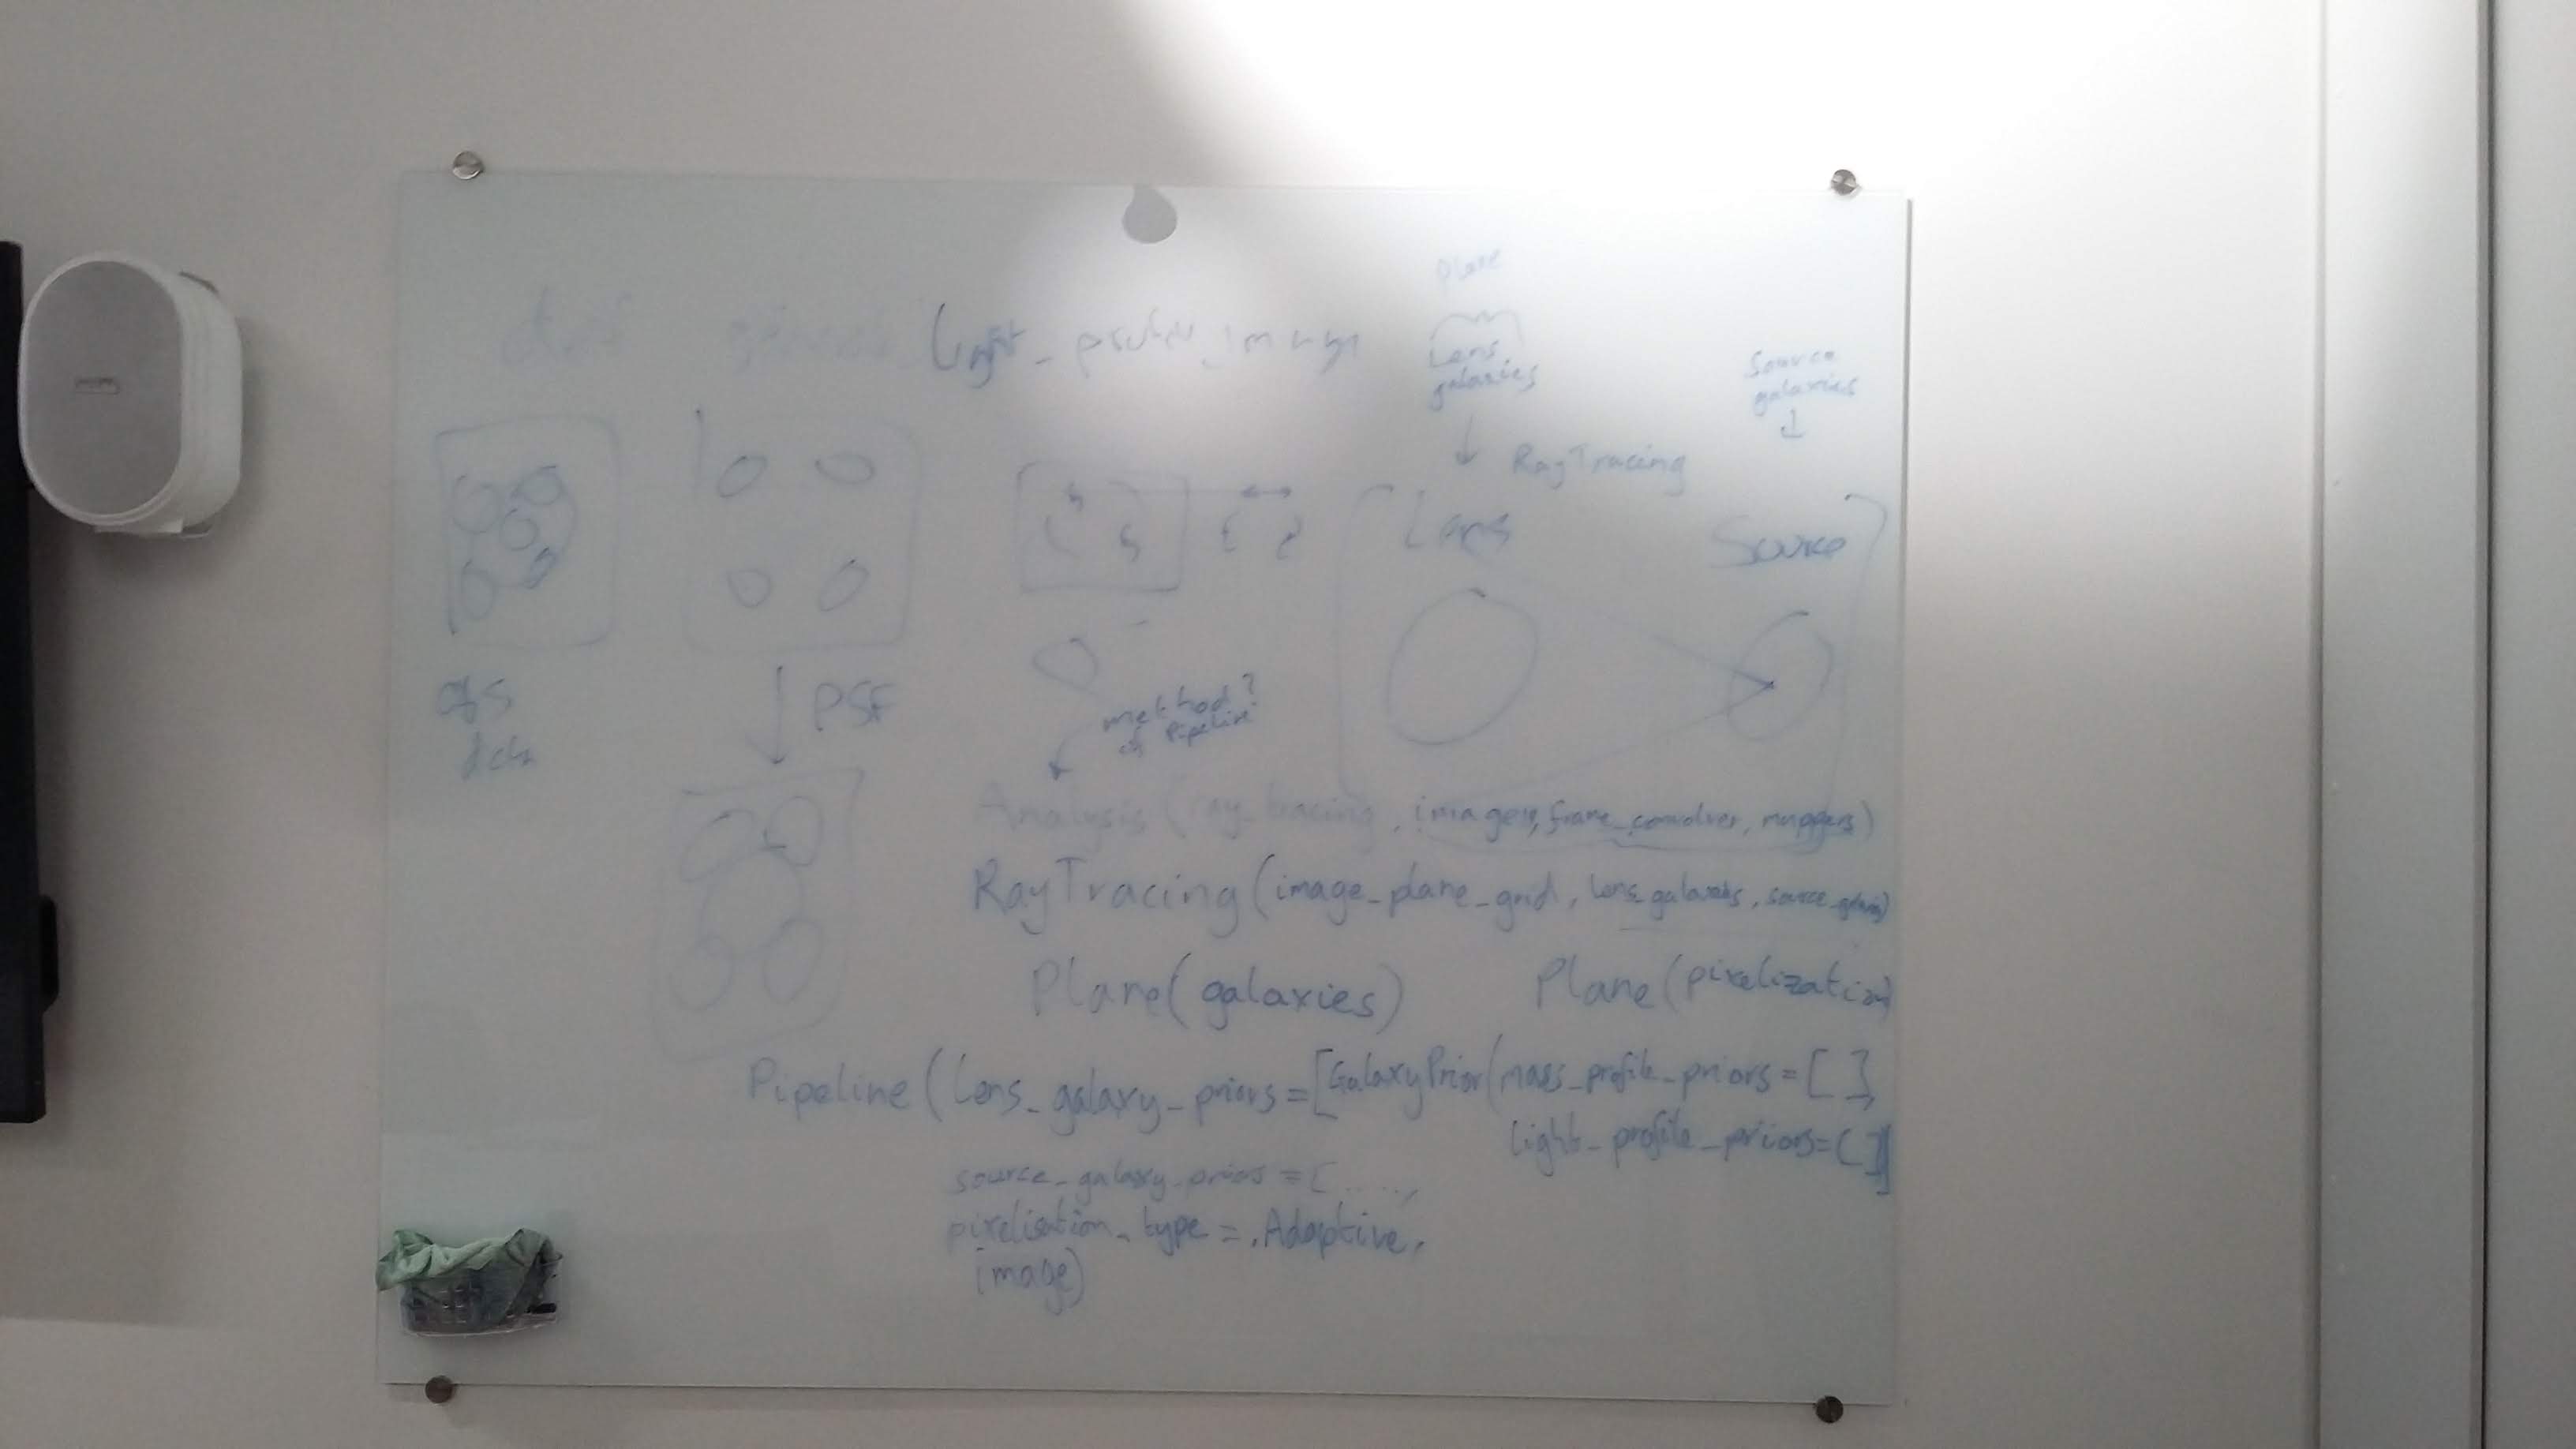 Plane
Lens
galaxies
Source
galaxies
RayTracing
Lens
Source
PSF
obs
method?
of pipeline
Analysis (ray_tracing, image, frame_convolver, mappers)
RayTracing (image_plane_grid, lens_galaxies, source_galaxies)
Plane (galaxies) Plane (pixelization)
Pipeline (lens_galaxy_priors = [GalaxyPrior(mass_profile_priors = [ ],
light_profile_priors = [ ])]
source_galaxy_priors = [ .....,
pixelisation_type = , Adaptive,
image)